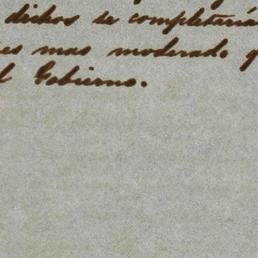 dichos se completará
es mas moderado q
l Gobierno.